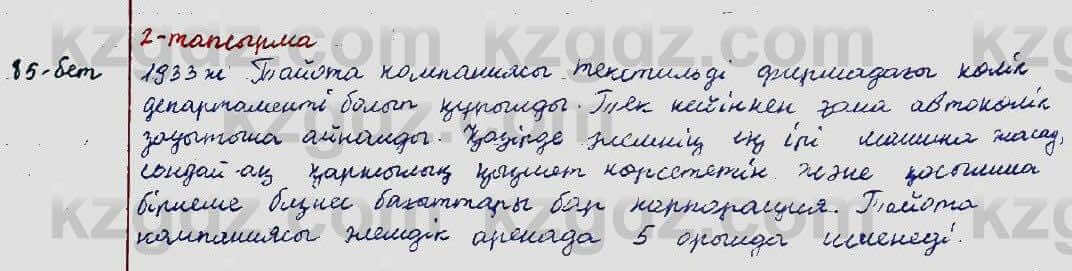 2-тапсырма
85-бет 1933 ж Тайота компаниясы текстильді фирмадағы көлік
департаменті болып құрылды. Тек кейіннен ғана автокөлік
зауытына айналды. Қазірде әлемнің ең ірі машина жасау,
сондай-ақ қаржылық қызмет көрсететін және қосымша
бірнеше бизнес бағыттары бар корпорация. Тайота
компаниясы әлемдік аренада 5 орында